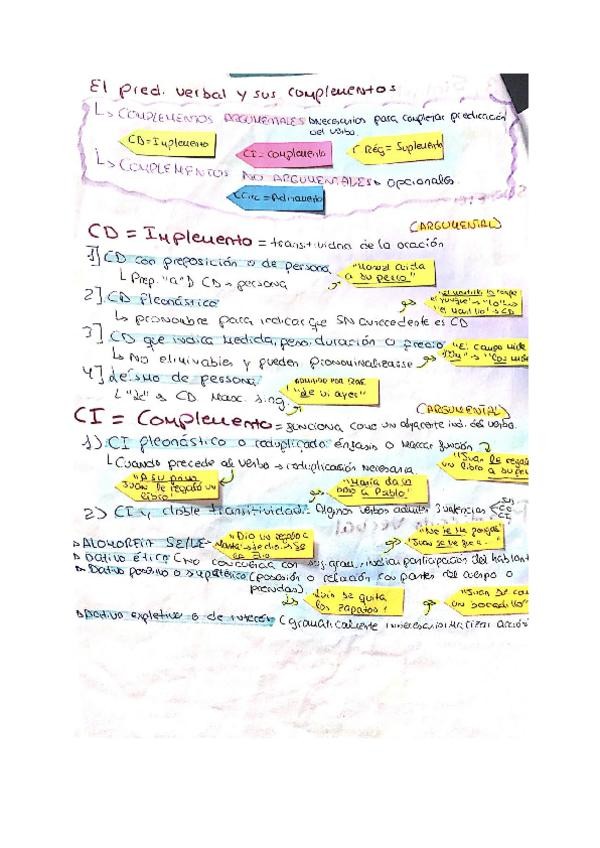 El pred. verbal y sus complementos
↳ COMPLEMENTOS ARGUMENTALES necesarios para completar predicación
del verbo.
CD = Implemento
CI = Complemento
C Rég = Suplemento
↳ COMPLEMENTOS NO ARGUMENTALES opcionales.
CCirc = Aditamento
CD = Implemento = transitividad de la oración
(ARGUMENTAL)
1] CD con preposición o de persona
"Manuel cuida
a su perro"
↳ Prep. "a" CD persona
2] CD Pleonástico
↳ pronombre para indicar que SN antecedente es CD
3] CD que indica medida, peso, duración o precio
"El campo mide
↳ NO eliminables y pueden pronominalizarse
4] Leísmo de persona
admitido por RAE
↳ "le" CD masc. sing.
"le vi ayer"
CI = Complemento = funciona como un adyacente ind. del verbo.
(ARGUMENTAL)
1) CI pleonástico o reduplicado: énfasis o marcar función
"Juan le regaló
un libro a su
↳ Cuando precede al verbo → reduplicación necesaria
"A su
Juan le regaló un
libro"
"María da un
a Pablo"
2) CI y doble transitividad: Algunos verbos admiten 3 valencias
Suj
CD
CI
ALOMORFIA SE/LE
"Dio un regalo a
"No te me pongas"
Dativo ético (NO concuerda con suj. gram., indica participación del hablant
Dativo posesivo o simpatético (posesión o relación con partes del cuerpo o
prendas)
Luis se quita
los zapatos"
"Juan se co
un bocadillo"
Dativo expletivo o de interés (gramaticalmente innecesario. Matizar acción